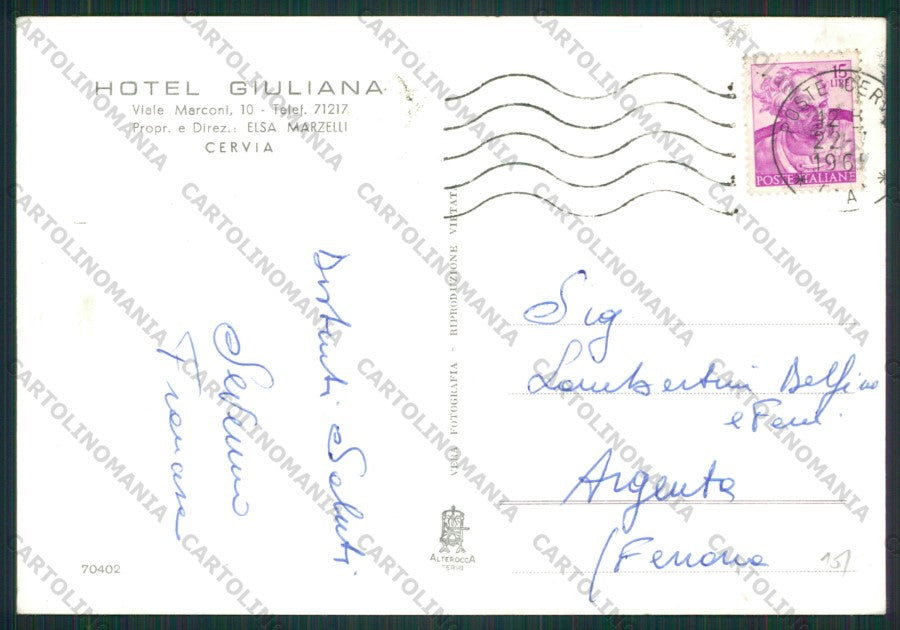 HOTEL GIULIANA
Viale Marconi, 10 - Telef. 71217
Propr. e Direz.: ELSA MARZELLI
CERVIA
Distinti Saluti
Severino
Francesca
70402
VERA FOTOGRAFIA - RIPRODUZIONE VIETATA
ALTEROCCA
TERNI
15
LIRE
POSTE ITALIANE
POSTE CERV
22
196
A
Sig
Lambertini Delfino
e Fam.
Argenta
(Ferrara
15/
CARTOLINOMANIA